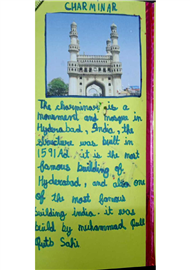 CHARMINAR
The charminar is a
monument and mosque in
Hyderabad, India, the
structure was built in
1591 Ad. it is the most
famous building of
Hyderabad, and also one
of the most famous
building india. it was
build by muhammad
Qutb Sahi